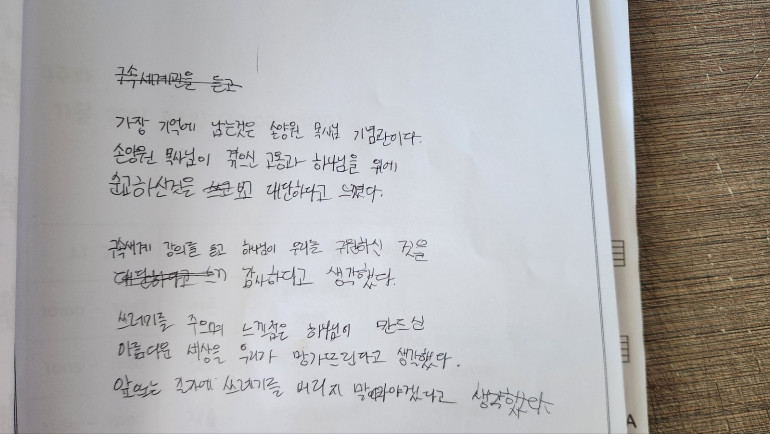 구속세계관을 듣고
가장 기억에 남는것은 손양원 목사님 기념관이다.
손양원 목사님이 겪으신 고통과 하나님을 위해
순교하신것을 보고 대단하다고 느꼈다.
구속세계 강의를 듣고 하나님이 우리를 구원하신 것을
대단하다고 감사하다고 생각했다.
쓰레기를 주으며 느낀점은 하나님이 만드신
아름다운 세상을 우리가 망가뜨린다고 생각했다.
앞으로는 쓰레기를 버리지 말아야겠다고 생각했다.
A